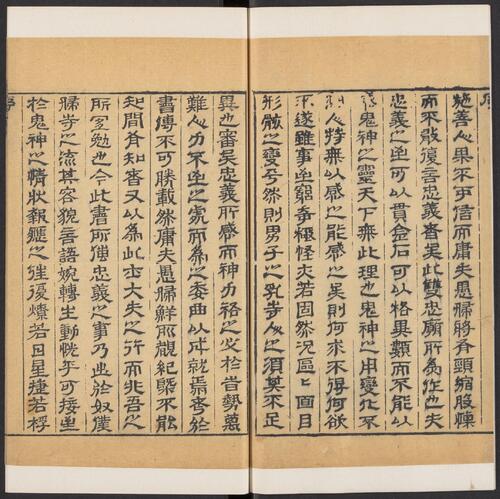 序
施善人果不可信而庸夫愚婦將有頸縮股慄
而不敢復言忠義者矣此雙忠廟所爲作也夫
忠義之至可以貫金石可以格異類而不能以
動鬼神之靈天下無此理也鬼神之用變化不
測人特無以感之能感之矣則何求不得何欲
不遂雖事至窮奇極怪夫若固然況區區面目
形骸之變乎然則男子之乳寺人之須莫不足
異也審矣忠義所感而神力格之必於當勢萬
難人力不至之處而爲之委曲以成就焉考於
書傳不可勝載然庸夫愚婦鮮所觀紀槩不能
知間有知者又以爲此士大夫之行而非吾之
所宜勉也今此書所傳忠義之事乃出於奴僕
婦寺之流其容貌言語婉轉生動恍乎可接至
於鬼神之情狀報應之往復燦若日星捷若桴
序